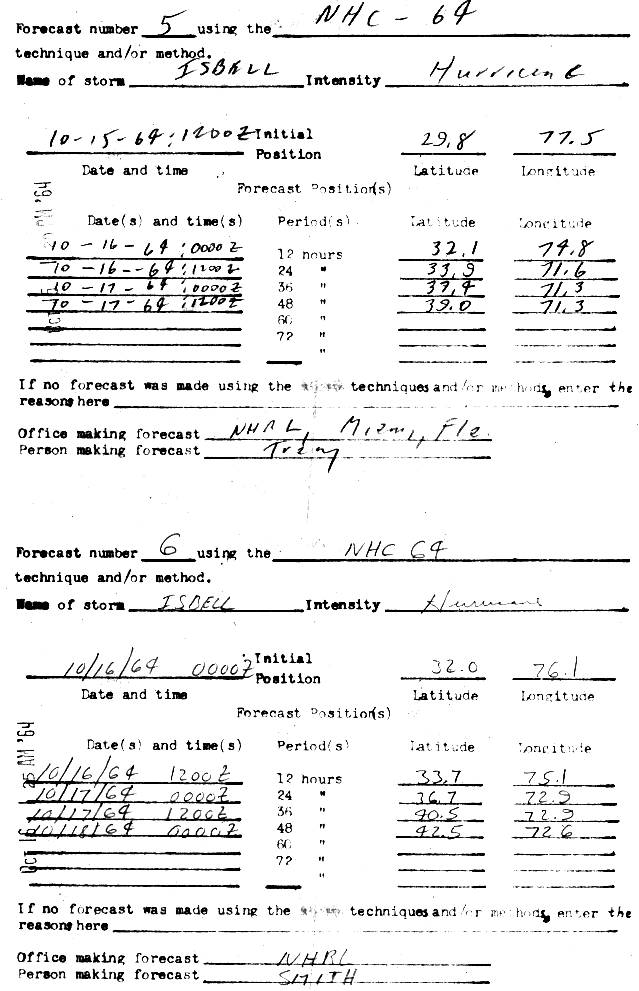 Forecast number 5 using the NHC - 64
technique and/or method.
Name of storm ISBELL Intensity Hurricane
10-15-64; 1200Z Initial Position 29.8 77.5
Date and time Latitude Longitude
Forecast Position(s)
Date(s) and time(s) Period(s) Latitude Longitude
10 - 16 - 64; 0000Z 12 hours 32.1 74.8
10 - 16 - 64; 1200Z 24 " 33.9 71.6
10 - 17 - 64; 0000Z 36 " 37.4 71.3
10 - 17 - 64; 1200Z 48 " 39.0 71.3
60 "
72 "
"
If no forecast was made using the techniques and/or methods, enter the
reasons here
Office making forecast NHRL, Miami, Fla.
Person making forecast
Forecast number 6 using the NHC 64
technique and/or method.
Name of storm ISBELL Intensity Hurricane
10/16/64 0000Z Initial Position 32.0 76.1
Date and time Latitude Longitude
Forecast Position(s)
Date(s) and time(s) Period(s) Latitude Longitude
10/16/64 1200Z 12 hours 33.7 75.1
10/17/64 0000Z 24 " 36.7 72.9
10/17/64 1200Z 36 " 40.5 72.9
10/18/64 0000Z 48 " 42.5 72.6
60 "
72 "
"
If no forecast was made using the techniques and/or methods, enter the
reasons here
Office making forecast NHRL
Person making forecast SMITH